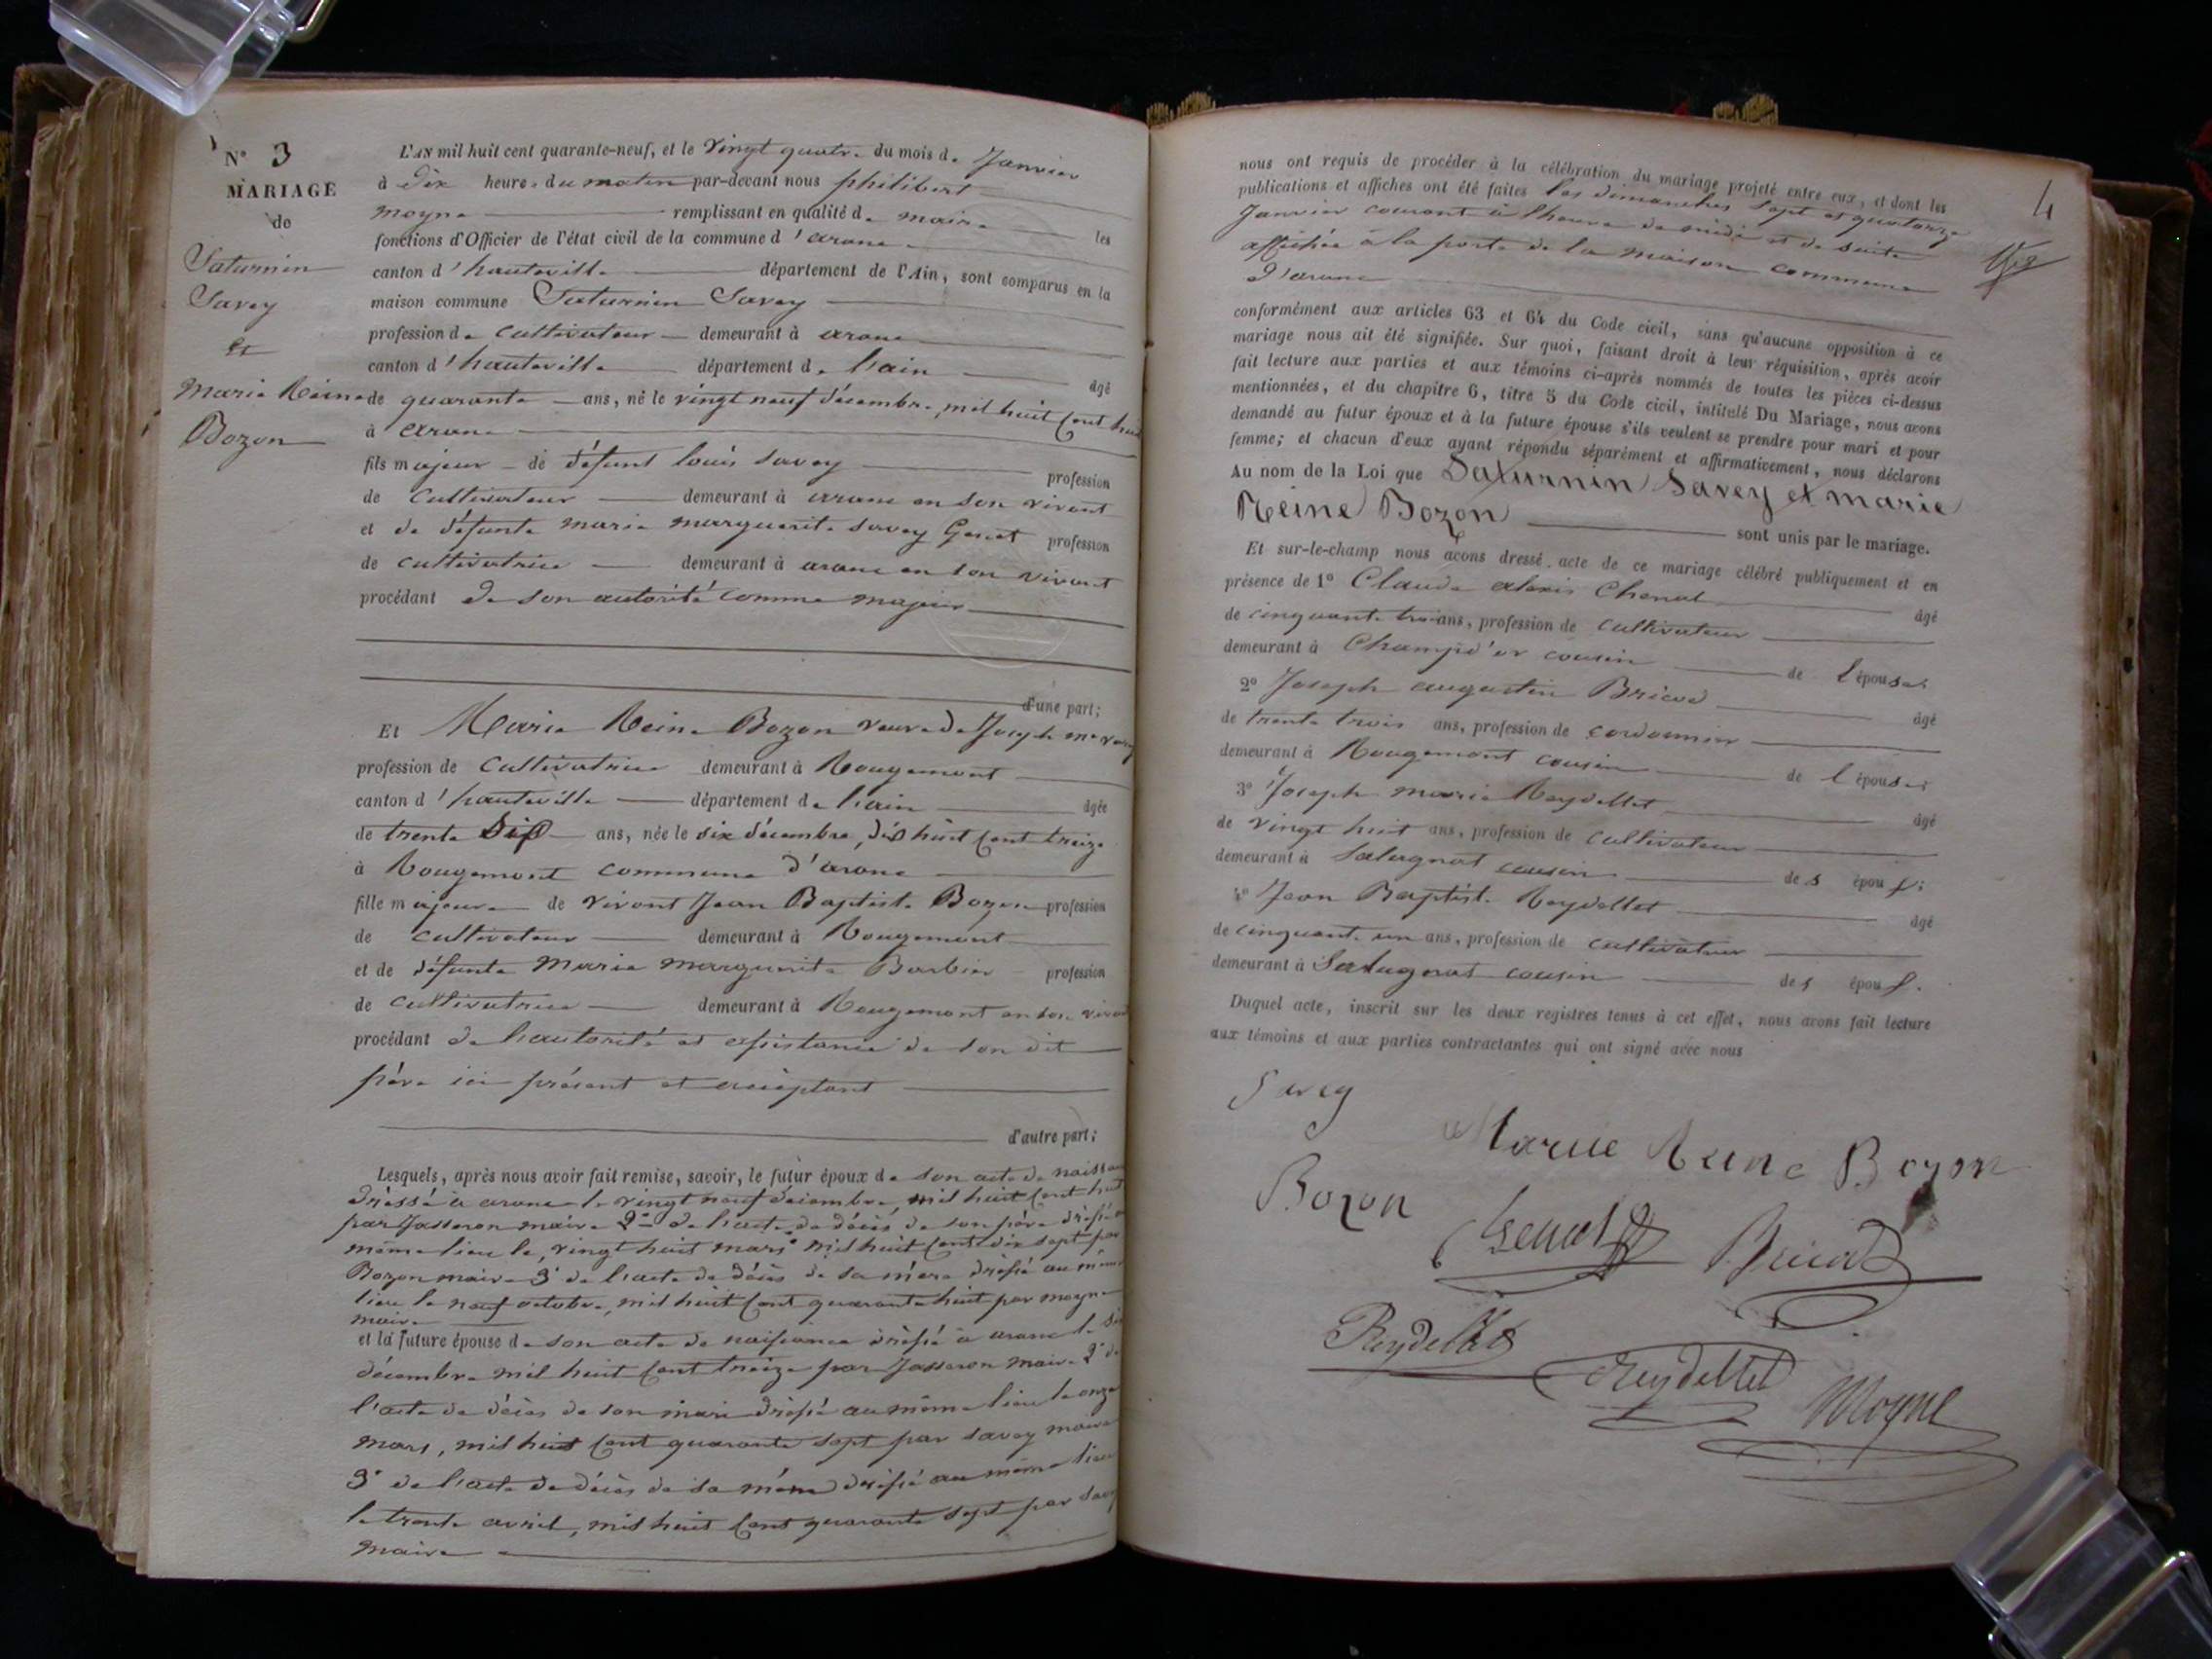 N° 3
MARIAGE
de
Saturnin
Savey
et
Marie Reine
Bozon
L'AN mil huit cent quarante-neuf, et le vingt quatre du mois de Janvier
à dix heures du matin par-devant nous philibert
moyne remplissant en qualité de maire les
fonctions d'Officier de l'état civil de la commune d'aranc
canton d'hauteville département de l'Ain, sont comparus en la
maison commune Saturnin Savey
profession de cultivateur demeurant à aranc
canton d'hauteville département de l'ain âgé
de quarante ans, né le vingt neuf décembre, mil huit cent huit
à aranc
fils majeur de défunt louis savey profession
de cultivateur demeurant à aranc en son vivant
et de défunte marie marguerite savey profession
de cultivatrice demeurant à aranc en son vivant
procédant de son autorité comme majeur
d'une part;
Et Marie Reine Bozon veuve de Joseph
profession de cultivatrice demeurant à Rougemont
canton d'hauteville département de l'ain âgée
de trente ans, née le six décembre, dix huit cent treize
à Rougemont commune d'aranc
fille majeure de vivant Jean Baptiste Bozon profession
de cultivateur demeurant à Rougemont
et de défunte Marie Marguerite Barbier profession
de cultivatrice demeurant à Rougemont en son vivant
procédant de l'autorité et assistance de son dit
père ici présent et acceptant
d'autre part;
Lesquels, après nous avoir fait remise, savoir, le futur époux de son acte de naissance
dressé à aranc le vingt neuf décembre, mil huit cent huit
par Jasseron maire 2° de l'acte de décès de son père dressé au
même lieu le vingt huit mars mil huit cent dix sept par
Bozon maire 3° de l'acte de décès de sa mère dressé au même
lieu le neuf octobre, mil huit cent quarante huit par moyne
maire
et la future épouse de son acte de naissance dressé à aranc le six
décembre mil huit cent treize par Jasseron maire 2° de
l'acte de décès de son mari dressé au même lieu le onze
mars, mil huit cent quarante sept par savey maire
3° de l'acte de décès de sa mère dressé au même lieu
le trente avril, mil huit cent quarante sept par savey
maire
4
nous ont requis de procéder à la célébration du mariage projeté entre eux, et dont les
publications et affiches ont été faites les dimanches sept et quatorze
Janvier courant à l'heure de midi et de suite
affichée à la porte de la maison commune
d'aranc
conformément aux articles 63 et 64 du Code civil, sans qu'aucune opposition à ce
mariage nous ait été signifiée. Sur quoi, faisant droit à leur réquisition, après avoir
fait lecture aux parties et aux témoins ci-après nommés de toutes les pièces ci-dessus
mentionnées, et du chapitre 6, titre 5 du Code civil, intitulé Du Mariage, nous avons
demandé au futur époux et à la future épouse s'ils veulent se prendre pour mari et pour
femme; et chacun d'eux ayant répondu séparément et affirmativement, nous déclarons
Au nom de la Loi que Saturnin Savey et marie
Reine Bozon sont unis par le mariage.
Et sur-le-champ nous avons dressé acte de ce mariage célébré publiquement et en
présence de 1° Claude alexis Chenal âgé
de cinquante trois ans, profession de cultivateur
demeurant à Champd'or cousin de l'épouse;
2° Joseph augustin Bricod âgé
de trente trois ans, profession de cordonnier
demeurant à Rougemont cousin de l'épouse;
3° Joseph marie Reydellet âgé
de vingt huit ans, profession de cultivateur
demeurant à Salagnat cousin des époux;
4° Jean Baptiste Reydellet âgé
de cinquante un ans, profession de cultivateur
demeurant à Salagnat cousin des époux.
Duquel acte, inscrit sur les deux registres tenus à cet effet, nous avons fait lecture
aux témoins et aux parties contractantes qui ont signé avec nous
Savey
Marie Reine Bozon
Bozon
Chenal
Bricod
Reydellet
Reydellet
Moyne